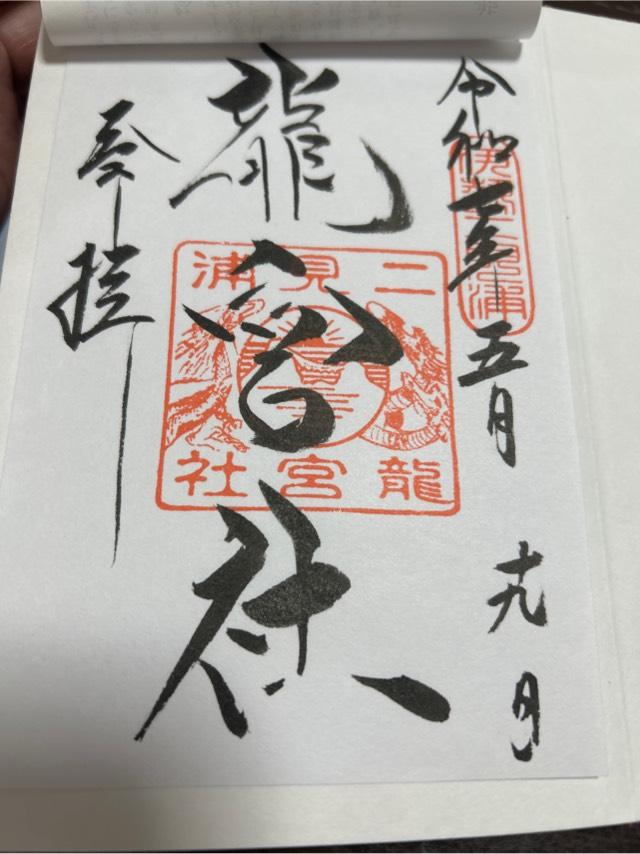 令和七年五月十九日
伊勢二見浦
龍宮社
二見浦
龍宮社
参拝